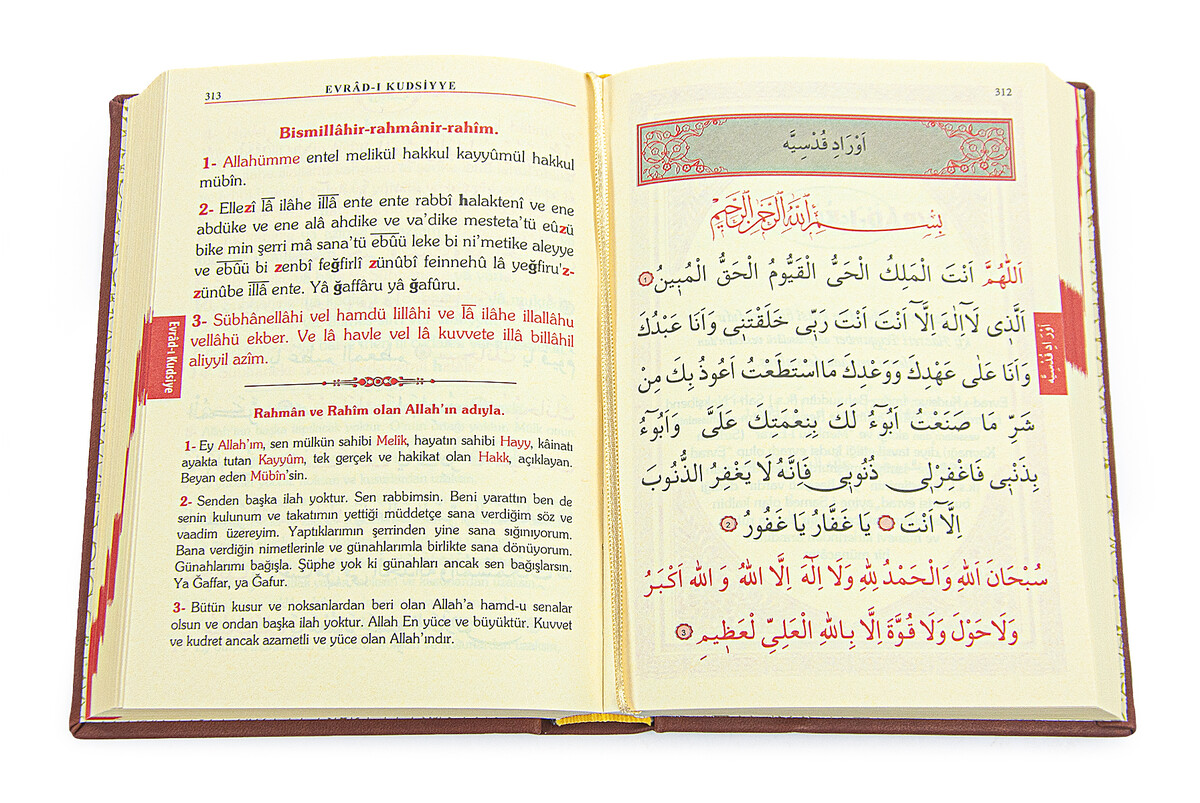 312
اَوْرَادِ قُدْسِيَّه
بِسْمِ اللّٰهِ الرَّحْمٰنِ الرَّحِيْمِ
اَللّٰهُمَّ اَنْتَ الْمَلِكُ الْحَىُّ الْقَيُّومُ الْحَقُّ الْمُبِينُ ١
اَلَّذِى لَآاِلٰهَ اِلَّآ اَنْتَ اَنْتَ رَبِّى خَلَقْتَنِى وَاَنَا عَبْدُكَ
وَاَنَا عَلٰى عَهْدِكَ وَوَعْدِكَ مَااسْتَطَعْتُ اَعُوذُ بِكَ مِنْ
شَرِّ مَا صَنَعْتُ اَبُوءُ لَكَ بِنِعْمَتِكَ عَلَىَّ وَاَبُوٓءُ
بِذَنْبِى فَاغْفِرْلِى ذُنُوبِى فَاِنَّهُ لَا يَغْفِرُ الذُّنُوبَ
اِلَّآ اَنْتَ يَا غَفَّارُ يَا غَفُورُ ٢
سُبْحَانَ اللهِ وَالْحَمْدُ لِلّٰهِ وَلَا اِلٰهَ اِلَّا اللهُ وَ الله اَكْبَرُ
وَلَاحَوْلَ وَلَا قُوَّةَ اِلَّا بِاللهِ الْعَلِىِّ لْعَظِيمِ ٣
اَوْرَادِ قُدْسِيَّه
313
EVRÂD-I KUDSİYYE
Bismillâhir-rahmânir-rahîm.
1- Allahümme entel melikül hakkul kayyûmül hakkul
mübîn.
2- Ellezî lâ ilâhe illâ ente ente rabbî halaktenî ve ene
abdüke ve ene alâ ahdike ve va'dike mesteta'tü eûzü
bike min şerri mâ sana'tü ebûü leke bi ni'metike aleyye
ve ebûü bi zenbî feğfirlî zünûbî feinnehu lâ yeğfiru'z-
zünûbe illâ ente. Yâ ğaffâru yâ ğafûru.
3- Sübhânellâhi vel hamdü lillâhi ve lâ ilâhe illallâhu
vellâhü ekber. Ve lâ havle vel lâ kuvvete illâ billâhil
aliyyil azîm.
Rahmân ve Rahîm olan Allah'ın adıyla.
1- Ey Allah'ım, sen mülkün sahibi Melik, hayatın sahibi Hayy, kâinatı
ayakta tutan Kayyûm, tek gerçek ve hakikat olan Hakk, açıklayan.
Beyan eden Mübîn'sin.
2- Senden başka ilah yoktur. Sen rabbimsin. Beni yarattın ben de
senin kulunum ve takatımın yettiği müddetçe sana verdiğim söz ve
vaadim üzereyim. Yaptıklarımın şerrinden yine sana sığınıyorum.
Bana verdiğin nimetlerinle ve günahlarımla birlikte sana dönüyorum.
Günahlarımı bağışla. Şüphe yok ki günahları ancak sen bağışlarsın.
Ya Ğaffar, ya Ğafur.
3- Bütün kusur ve noksanlardan beri olan Allah'a hamd-u senalar
olsun ve ondan başka ilah yoktur. Allah En yüce ve büyüktür. Kuvvet
ve kudret ancak azametli ve yüce olan Allah'ındır.
Evrâd-ı Kudsiye